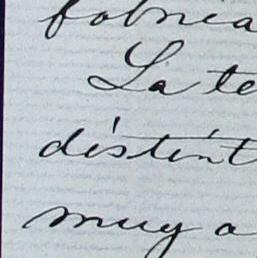 fabrica
La te
distint
muy a